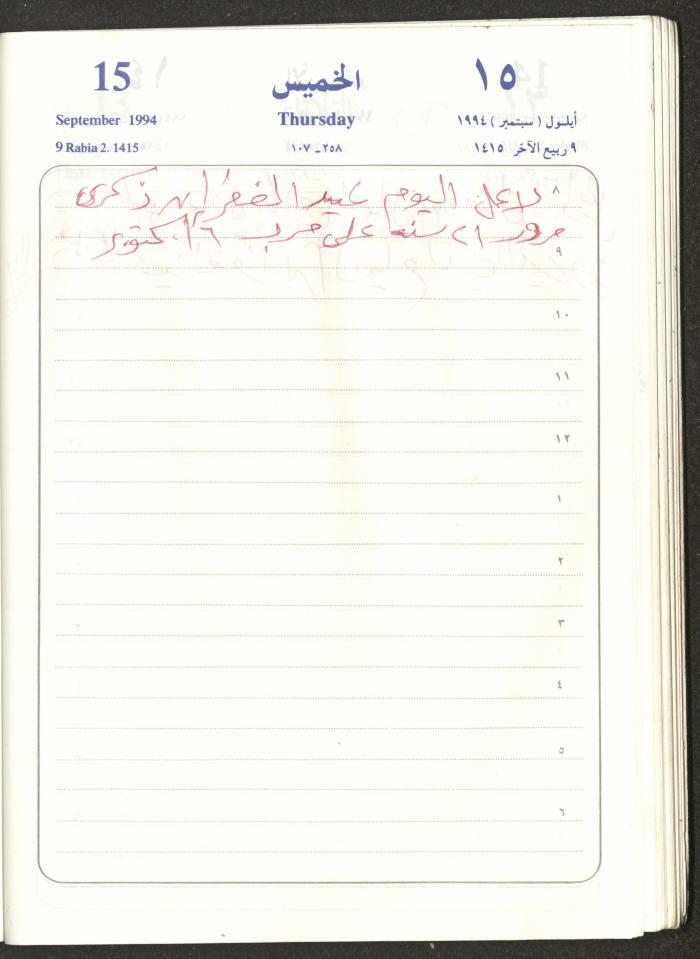 15 الخميس ١٥
September 1994 Thursday أيلول ( سبتمبر ) ١٩٩٤
9 Rabia 2. 1415 ٢٥٨ ـ ١٠٧ ٩ ربيع الآخر ١٤١٥
٨ لا عمل اليوم عيد الغفران ذكرى
مرور ٢١ سنه على حرب ٦ أكتوبر
٩
١٠
١١
١٢
١
٢
٣
٤
٥
٦